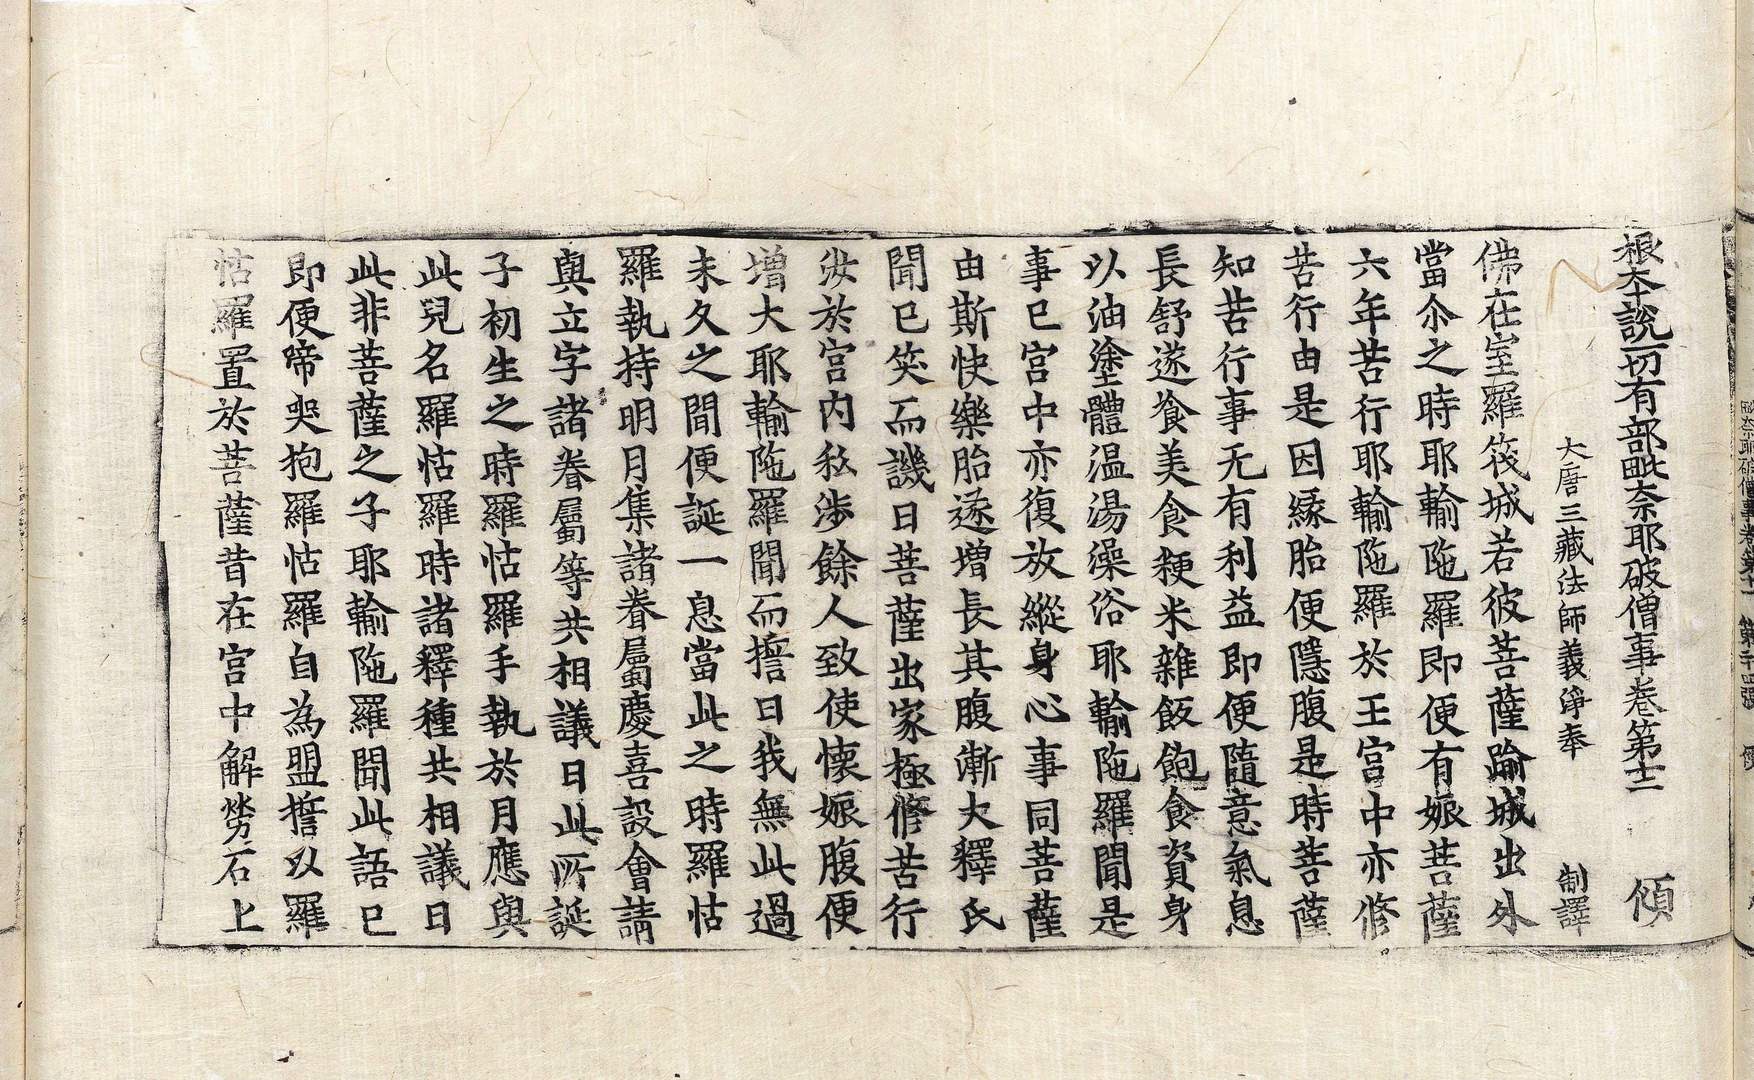 根本說一切有部毗奈耶破僧事卷第十二 傾
大唐三藏法師義淨奉 制譯
佛在室羅筏城若彼菩薩踰城出外
當尒之時耶輸陁羅即便有娠菩薩
六年苦行耶輸陁羅於王宮中亦修
苦行由是因緣胎便隱腹是時菩薩
知苦行事无有利益即便隨意氣息
長舒遂飡美食粳米雜飯飽食資身
以油塗體温湯澡浴耶輸陁羅聞是
事已宮中亦復放縱身心事同菩薩
由斯快樂胎遂增長其腹漸大釋氏
聞已笑而譏曰菩薩出家極修苦行
汝於宮内私涉餘人致使懷娠腹便
增大耶輸陁羅聞而誓曰我無此過
未久之間便誕一息當此之時羅怙
羅執持明月集諸眷屬慶喜設會請
與立字諸眷屬等共相議曰此所誕
子初生之時羅怙羅手執於月應與
此兒名羅怙羅時諸釋種共相議曰
此非菩薩之子耶輸陁羅聞此語已
即便啼哭抱羅怙羅自為盟誓以羅
怙羅置於菩薩昔在宮中解勞石上